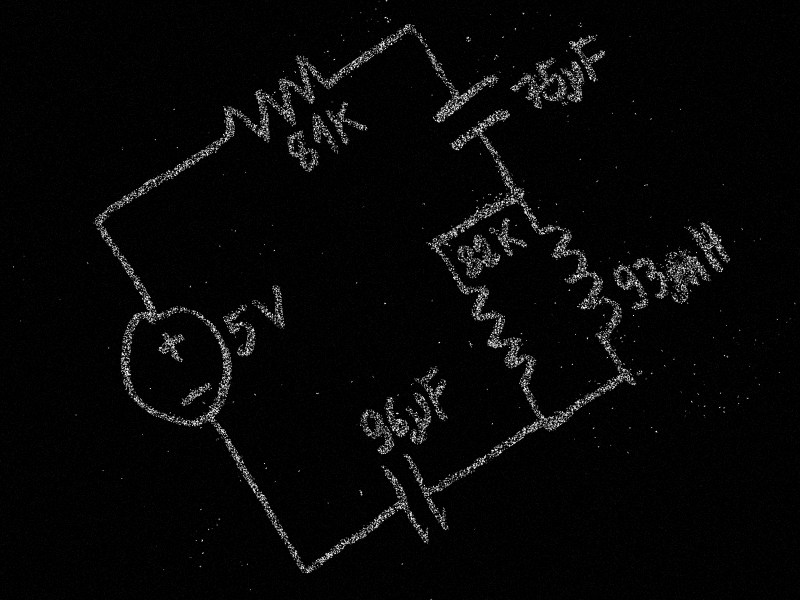 81K
75µF
82K
938mH
5V
+
−
96µF